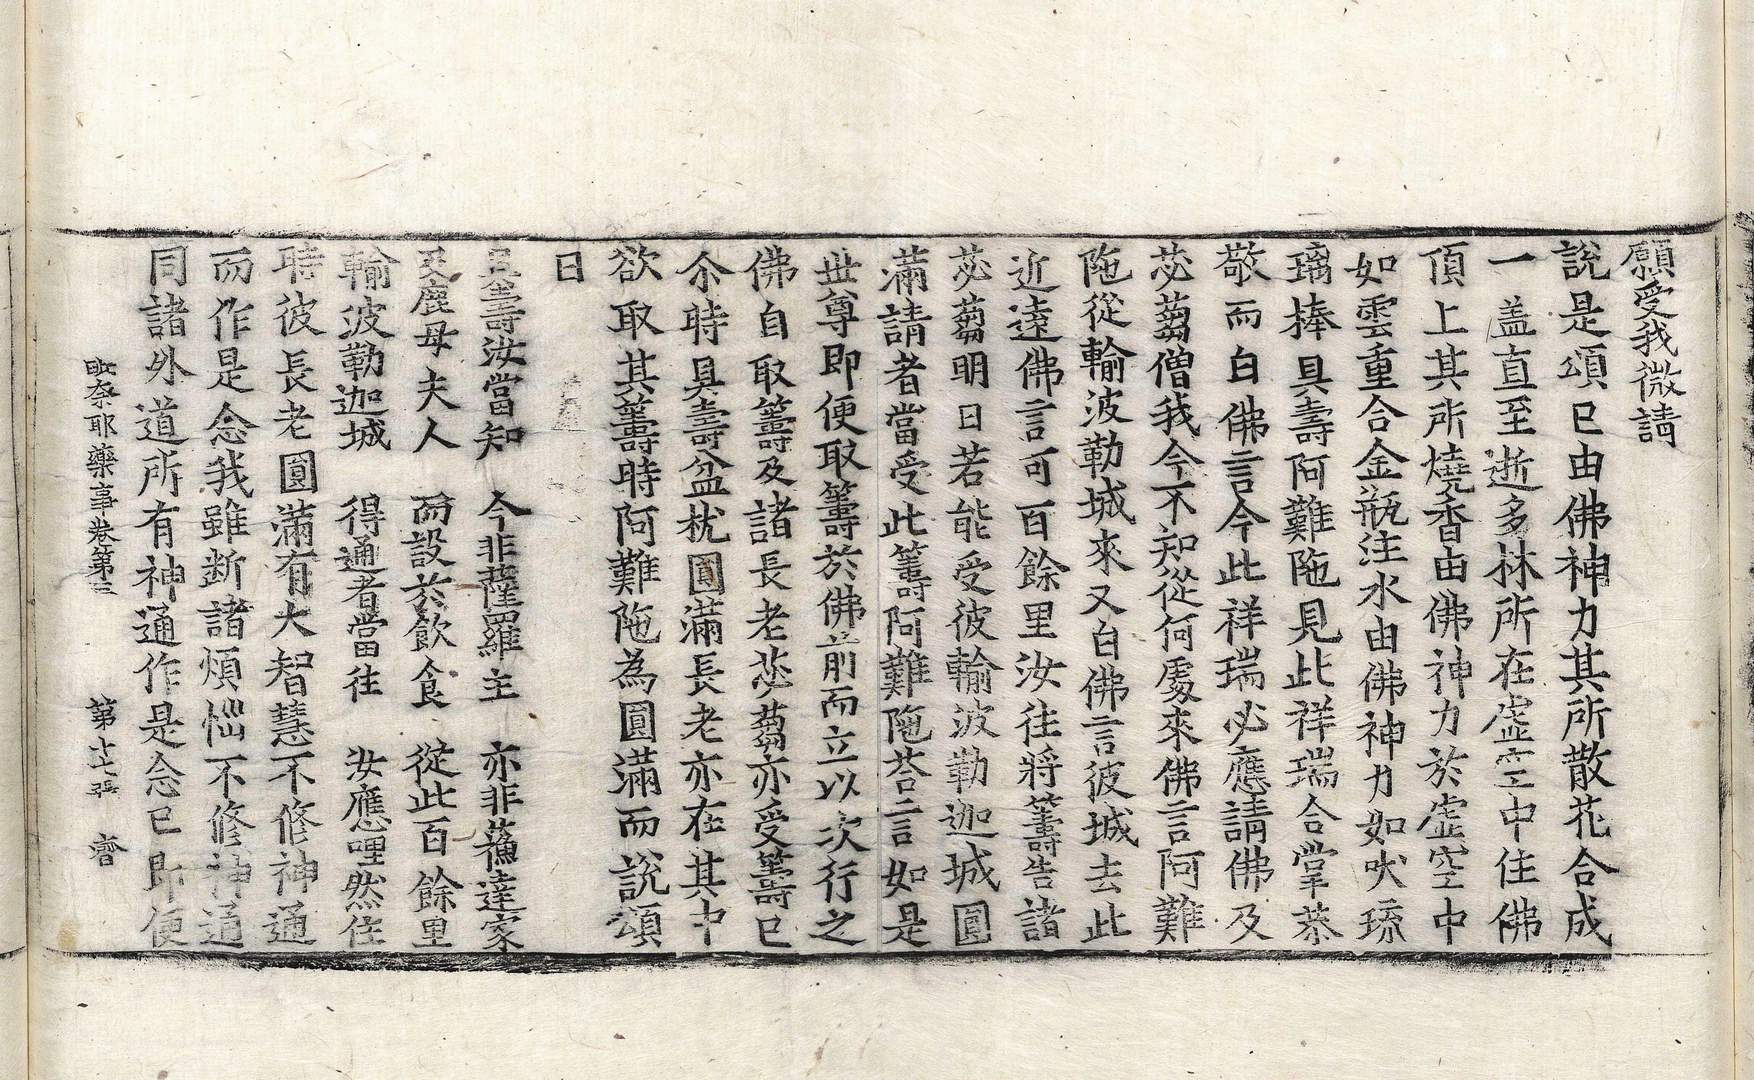 願受我微請
說是頌已由佛神力其所散花合成
一盖直至逝多林所在虛空中住佛
頂上其所燒香由佛神力於虛空中
如雲重合金瓶注水由佛神力如吠琉
璃捧具壽阿難陁見此祥瑞合掌恭
敬而白佛言今此祥瑞必應請佛及
苾蒭僧我今不知從何處來佛言阿難
陁從輸波勒城來又白佛言彼城去此
近遠佛言可百餘里汝往將籌告諸
苾蒭明日若能受彼輸波勒迦城圓
滿請者當受此籌阿難陁荅言如是
世尊即便取籌於佛前而立以次行之
佛自取籌及諸長老苾蒭亦受籌已
尒時具壽盆枕圓滿長老亦在其中
欲取其籌時阿難陁為圓滿而說頌
曰
具壽汝當知　今非薩羅主　亦非蘓達家
又鹿母夫人　而設於飲食　從此百餘里
輸波勒迦城　得通者當往　汝應哩然住
時彼長老圓滿有大智慧不修神通
而作是念我雖断諸煩惱不修神通
同諸外道所有神通作是念已即便
毗奈耶藥事卷第三　第十七張　奝